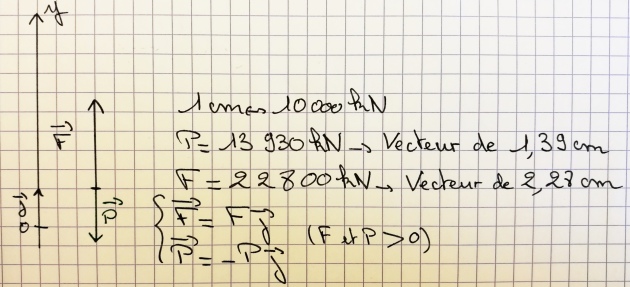 y
1 cm ↔ 10 000 kN
F⃗
P = 13 930 kN → Vecteur de 1,39 cm
F = 22 800 kN → Vecteur de 2,28 cm
j⃗
P⃗
F⃗ = F j⃗
0
(F et P > 0)
P⃗ = -P j⃗